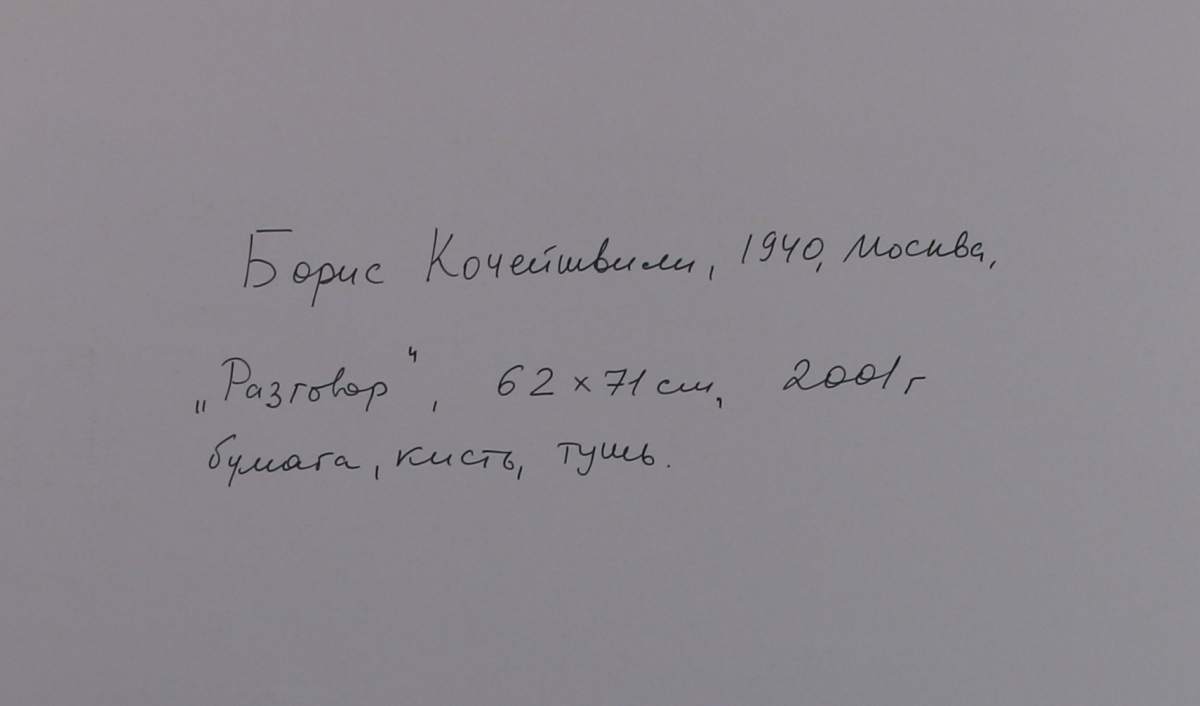 Борис Кочейшвили, 1940, Москва,
„Разговор“, 62 × 71 см, 2001 г
бумага, кисть, тушь.